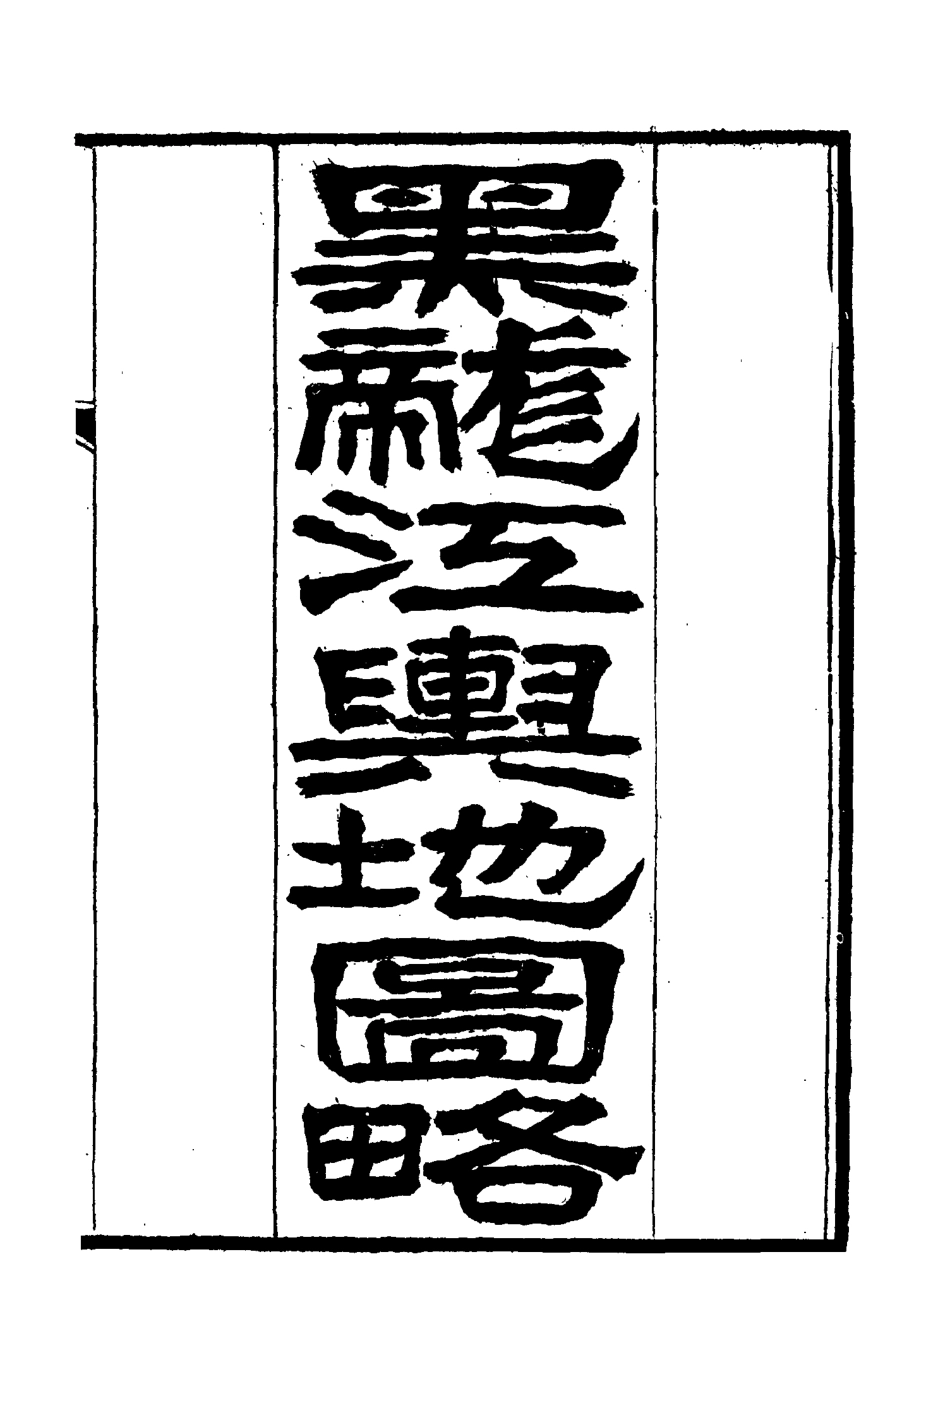 黑龍江輿地圖略